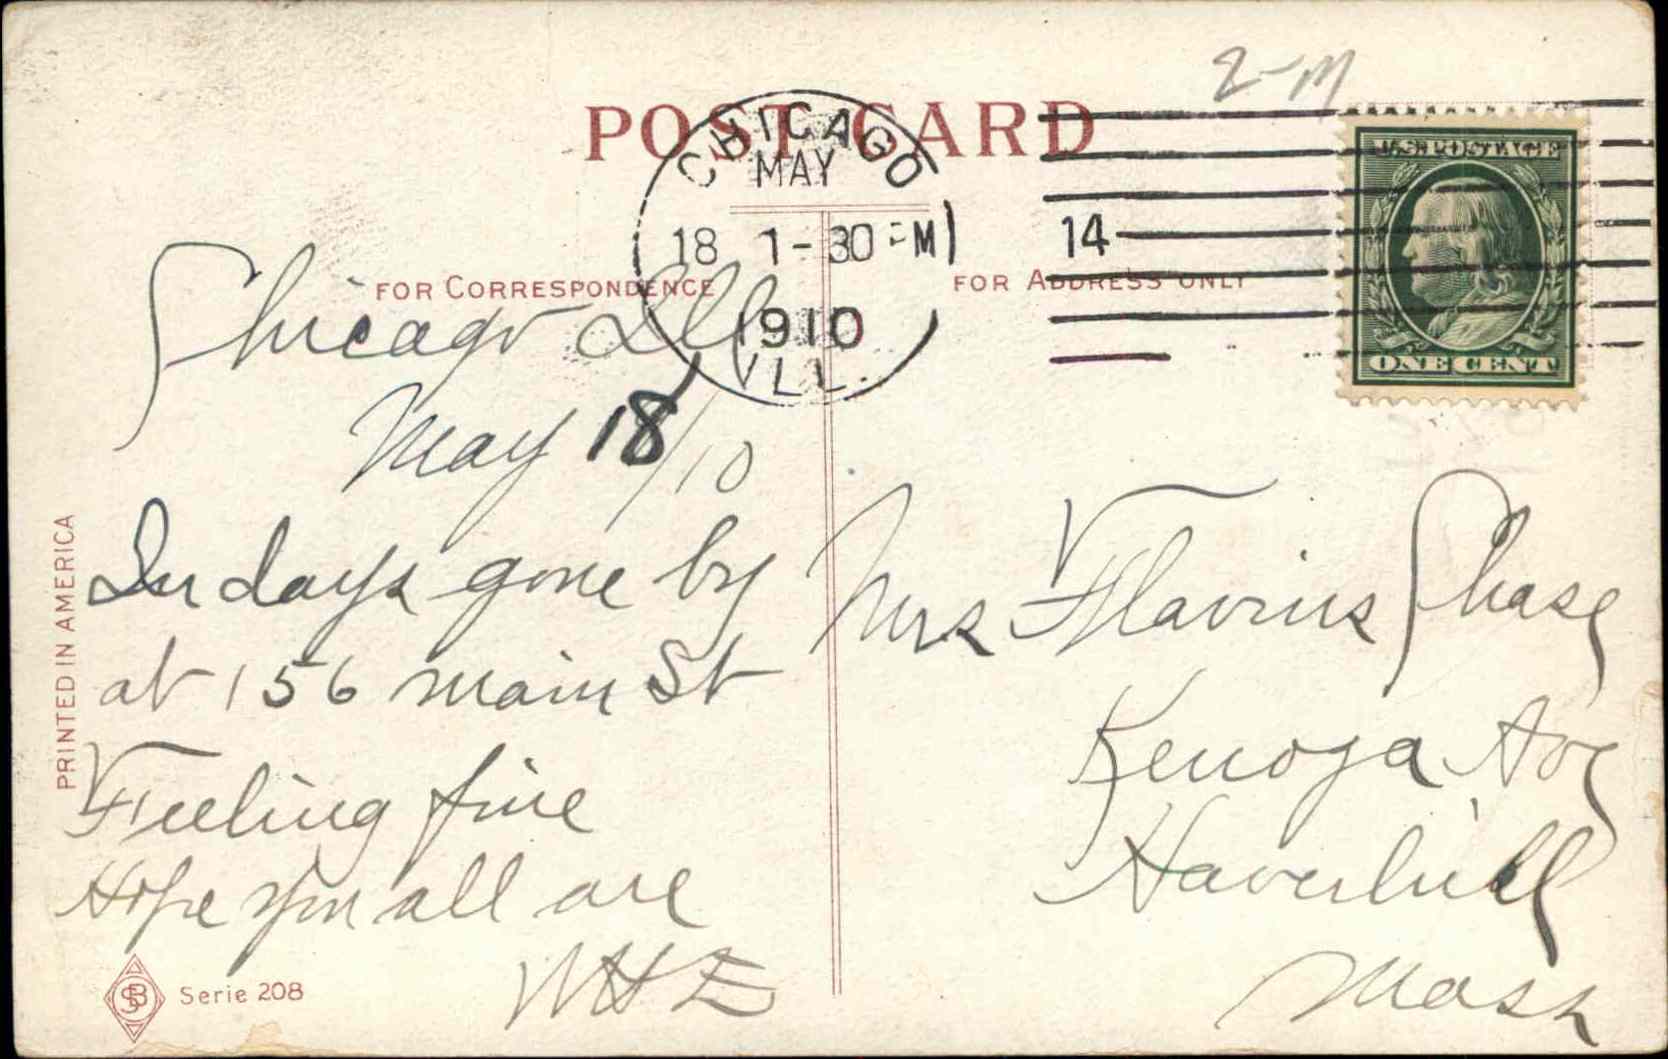 2-M
POST CARD
CHICAGO
MAY
18 1-30 PM
1910
ILL.
14
U.S. POSTAGE
ONE CENT
FOR CORRESPONDENCE
FOR ADDRESS ONLY
PRINTED IN AMERICA
Chicago Ill
May 18/10
In days gone by
at 156 Main St
Feeling fine
Hope you all are
WHE
Mrs Flavius Chase
Kenoza Ave
Haverhill
Mass
SB
Serie 208